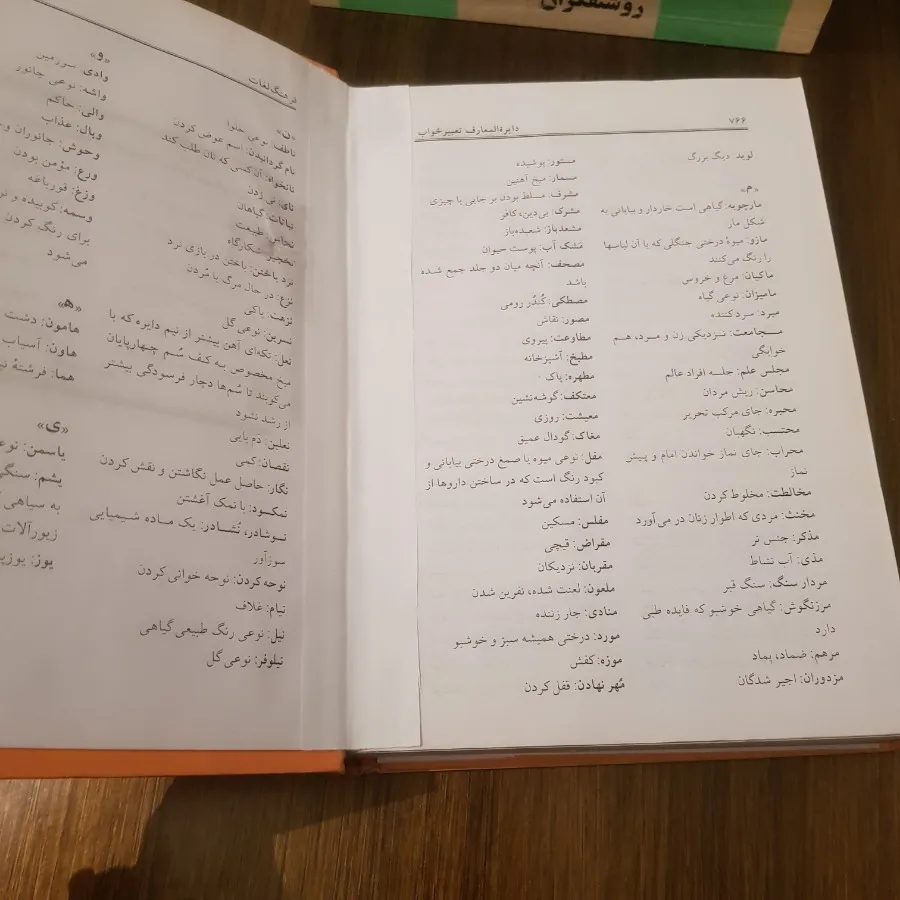 روشنفکران
۷۶۶
دایرةالمعارف تعبیر خواب
لوید: دیگ بزرگ
«م»
مارچوبه: گیاهی است خاردار و بیابانی به
شکل مار
مازو: میوهٔ درختی جنگلی که با آن لباسها
را رنگ می‌کنند
ماکیان: مرغ و خروس
مامیران: نوعی گیاه
مبرد: سردکننده
مجامعت: نزدیکی زن و مرد، هم
خوابگی
مجلس علم: جلسه افراد عالم
محاسن: ریش مردان
محبره: جای مرکب تحریر
محتسب: نگهبان
محراب: جای نماز خواندن امام و پیش
نماز
مخالطت: مخلوط کردن
مخنث: مردی که اطوار زنان در می‌آورد
مذکر: جنس نر
مذی: آب نشاط
مردار سنگ: سنگ قبر
مرزنگوش: گیاهی خوشبو که فایده طبی
دارد
مرهم: ضماد، پماد
مزدوران: اجیر شدگان
مستور: پوشیده
مسمار: میخ آهنین
مشرف: مسلط بودن بر جایی یا چیزی
مشرک: بی‌دین، کافر
مشعدباز: شعبده‌باز
مشک آب: پوست حیوان
مصحف: آنچه میان دو جلد جمع شده
باشد
مصطکی: کُندُر رومی
مصور: نقاش
مطاوعت: پیروی
مطبخ: آشپزخانه
مطهره: پاک
معتکف: گوشه‌نشین
معیشت: روزی
مغاک: گودال عمیق
مقل: نوعی میوه یا صمغ درختی بیابانی و
کبود رنگ است که در ساختن داروها از
آن استفاده می‌شود
مفلس: مسکین
مقراض: قیچی
مقربان: نزدیکان
ملعون: لعنت شده، نفرین شدن
منادی: جار زننده
مورد: درختی همیشه سبز و خوشبو
موزه: کفش
مُهر نهادن: قفل کردن
فرهنگ لغات
«ن»
ناطف: نوعی حلوا
نام گردانیدن: اسم عوض کردن
نانخواه: آن کسی که نان طلب کند
نای: نی زدن
نباتات: گیاهان
نحاس: طبیعت
نخجیر: شکارگاه
نرد باختن: باختن در بازی نرد
نزع: در حال مرگ یا مُردن
نزهت: پاکی
نسرین: نوعی گل
نعل: تکه‌ای آهن بیشتر از نیم دایره که با
میخ مخصوص به کف سُم چهارپایان
می‌کوبند تا سُم‌ها دچار فرسودگی بیشتر
از رشد نشود
نعلین: دَم پایی
نقصان: کمی
نگار: حاصل عمل نگاشتن و نقش کردن
نمکسود: با نمک آغشتن
نوشادر، نُشادر: یک ماده شیمیایی
سوزآور
نوحه کردن: نوحه خوانی کردن
نیام: غلاف
نیل: نوعی رنگ طبیعی گیاهی
نیلوفر: نوعی گل
«و»
وادی: سرزمین
واشه: نوعی جانور
والی: حاکم
وبال: عذاب
وحوش: جانوران و
ورع: مؤمن بودن
وزغ: قورباغه
وسمه: کوبیده و
برای رنگ کردن
می‌شود
«ه»
هامون: دشت
هاون: آسیاب
هما: فرشتهٔ
«ی»
یاسمن:
یشم: سنگی
به سیاهی
زیورآلات
یوز: